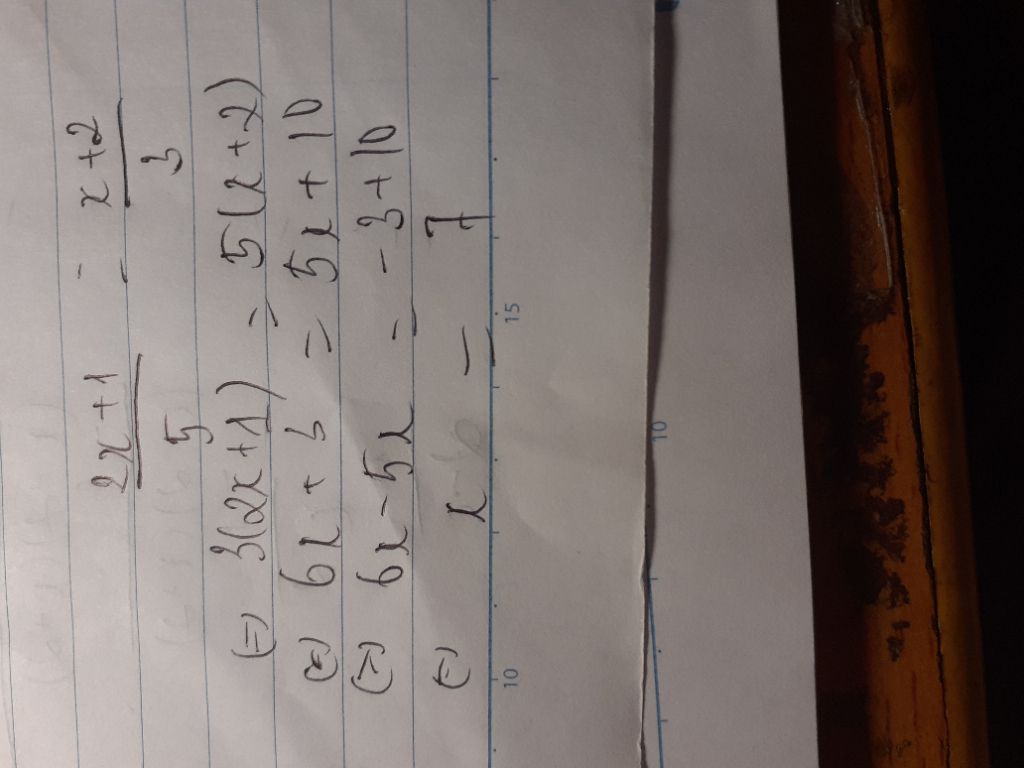 2x+1 = x+2
5 3
(=) 3(2x+1) = 5(x+2)
(=) 6x + 3 = 5x + 10
(=) 6x - 5x = -3 + 10
(=) x = 7
10 15
10